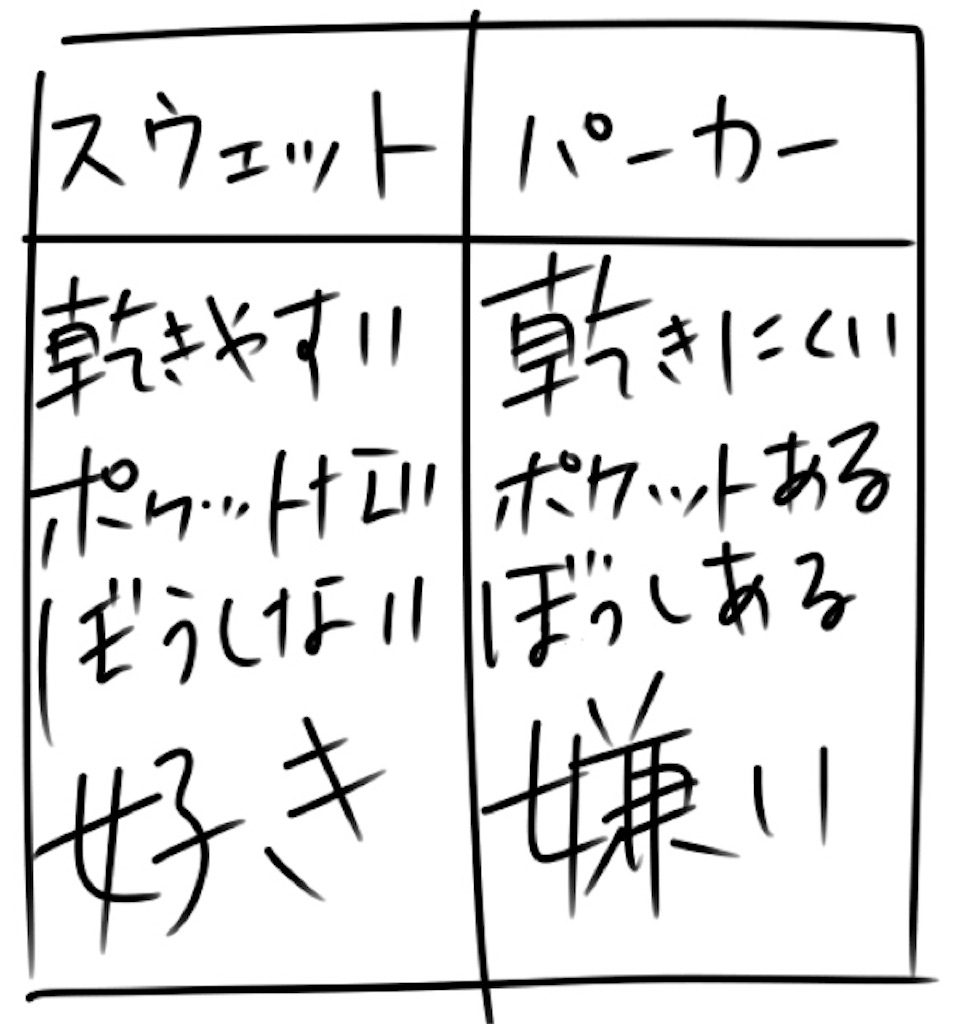 スウェット
パーカー
乾きやすい
ポケットなし
ぼうしない
好き
乾きにくい
ポケットある
ぼうしある
嫌い